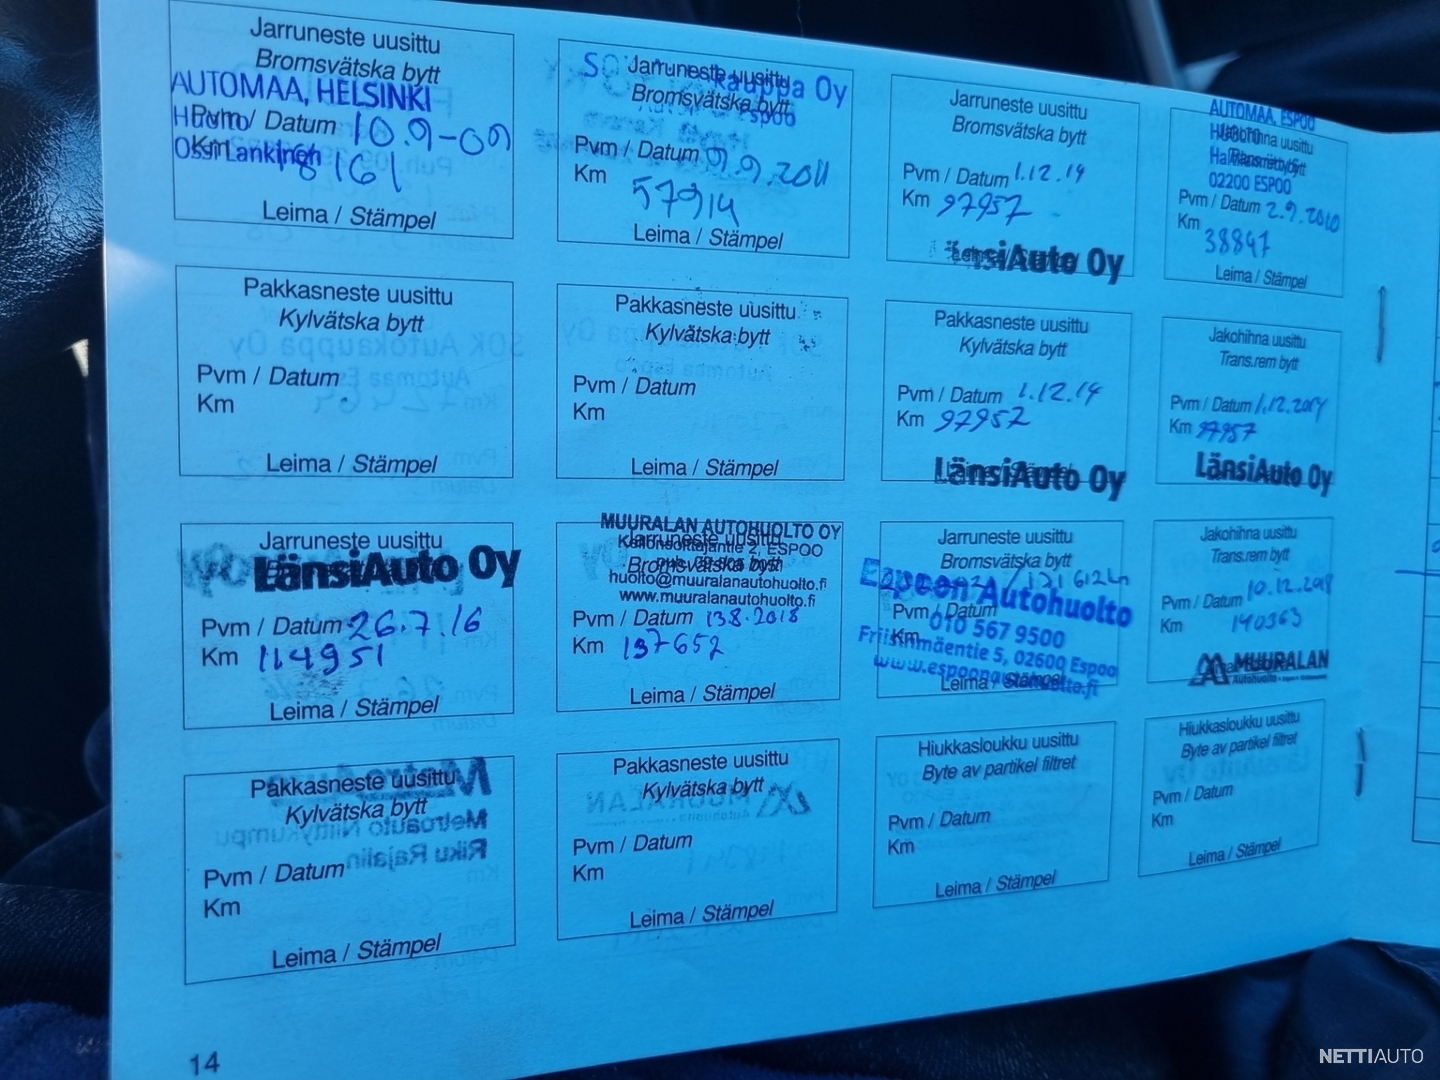 Jarruneste uusittu
Bromsvätska bytt
AUTOMAA, HELSINKI
Huolto
Pvm / Datum 10.9-09
Km 18161
Ossi Lankinen
Leima / Stämpel
Jarruneste uusittu
kauppa Oy
Bromsvätska bytt
Espoo
Pvm / Datum 9.9.2011
Km
57914
Leima / Stämpel
Jarruneste uusittu
Bromsvätska bytt
Pvm / Datum 1.12.14
Km 97957
LänsiAuto Oy
AUTOMAA, ESPOO
Jakohihna uusittu
Trans.rem bytt
02200 ESPOO
Pvm / Datum 2.9.2010
Km
38847
Leima / Stämpel
Pakkasneste uusittu
Kylvätska bytt
Pvm / Datum
Km
Leima / Stämpel
Pakkasneste uusittu
Kylvätska bytt
Pvm / Datum
Km
Leima / Stämpel
Pakkasneste uusittu
Kylvätska bytt
Pvm / Datum 1.12.14
Km 97957
LänsiAuto Oy
Jakohihna uusittu
Trans.rem bytt
Pvm / Datum 1.12.2014
Km 97957
LänsiAuto Oy
Jarruneste uusittu
LänsiAuto Oy
Pvm / Datum 26.7.16
Km 114951
Leima / Stämpel
MUURALAN AUTOHUOLTO OY
Jarruneste uusittu
ESPOO
Bromsvätska bytt
huolto@muuralanautohuolto.fi
www.muuralanautohuolto.fi
Pvm / Datum 13.8.2018
Km 137652
Leima / Stämpel
Jarruneste uusittu
Bromsvätska bytt
Espoon Autohuolto
Pvm / Datum
010 567 9500
Km
Friisinmäentie 5, 02600 Espoo
www.espoonautohuolto.fi
Leima / Stämpel
Jakohihna uusittu
Trans.rem bytt
Pvm / Datum 10.12.2018
Km 140363
MUURALAN
Pakkasneste uusittu
Kylvätska bytt
Pvm / Datum
Km
Leima / Stämpel
Pakkasneste uusittu
Kylvätska bytt
Pvm / Datum
Km
Leima / Stämpel
Hiukkasloukku uusittu
Byte av partikel filtret
Pvm / Datum
Km
Leima / Stämpel
Hiukkasloukku uusittu
Byte av partikel filtret
Pvm / Datum
Km
Leima / Stämpel
14
NETTIAUTO